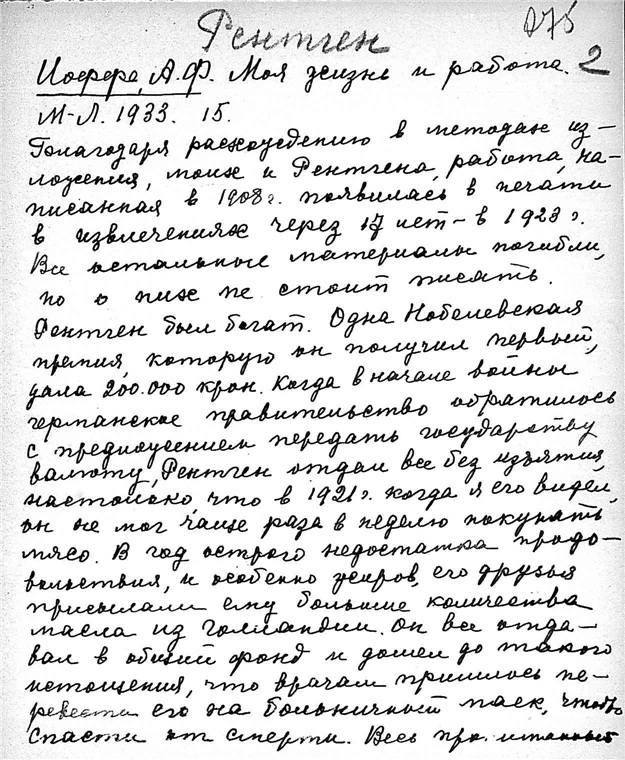 Рентген
275
Иоффе, А.Ф. Моя жизнь и работа. 2
М-Л. 1933. 15.
Благодаря расхождению в методах из-
ложения, моих и Рентгена, работа, на-
писанная в 1908 г. появилась в печати
в извлечениях через 17 лет - в 1923 г.
Все остальные материалы погибли,
но о них не стоит писать.
Рентген был богат. Одна Нобелевская
премия, которую он получил первый,
дала 200.000 крон. Когда в начале войны
германское правительство обратилось
с предложением передать государству
валюту, Рентген отдал все без изъятия,
настолько, что в 1921 г. когда я его видел,
он не мог чаще раза в неделю покупать
мясо. В год острого недостатка продо-
вольствия, и особенно жиров, его друзья
присылали ему большие количества
масла из Голландии. Он все отда-
вал в общий фонд и дошел до такого
истощения, что врачам пришлось пе-
ревести его на больничный паек, чтобы
спасти от смерти. Весь